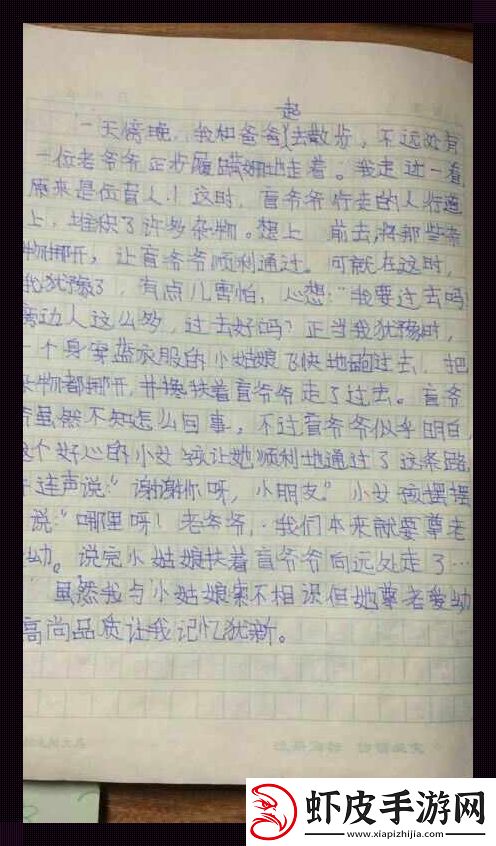 起
一天傍晚，我和爸爸去散步，不远处有
一位老爷爷正步履蹒跚地走着。我走进一看，
原来是位盲人！这时，盲爷爷行走的人行道
上，堆积了许多杂物。想上 前去，将那些杂
物挪开，让盲爷爷顺利通过。可就在这时，
我犹豫了，有点儿害怕，心想：“我要过去吗？
旁边人这么多，过去好吗？正当我犹豫时，
一个身穿蓝衣服的小姑娘飞快地跑过去，把
杂物都挪开，并搀扶着盲爷爷走了过去。盲爷
爷虽然不知怎么回事，不过盲爷爷似乎明白，
这个好心的小女孩让她顺利地通过了这条路，
连声说：“谢谢你呀，小朋友。”小女孩摆摆
说：“哪里呀！老爷爷，我们本来就要尊老
幼。说完小姑娘扶着盲爷爷向远处走了…
虽然我与小姑娘素不相识但她尊老爱幼
高尚品质让我记忆犹新。
虾皮手游网
www.xiapizhijia.com